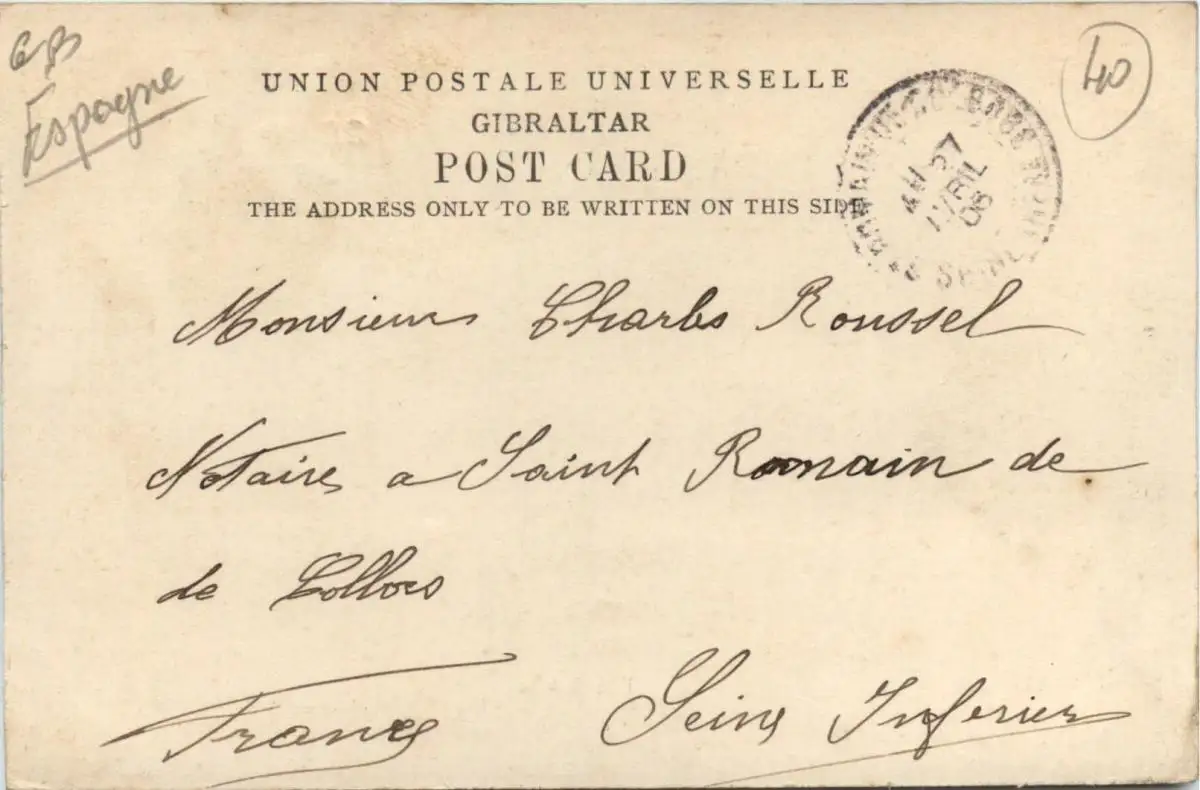 GB
Espagne
40
UNION POSTALE UNIVERSELLE
GIBRALTAR
POST CARD
THE ADDRESS ONLY TO BE WRITTEN ON THIS SIDE
27
AVRIL
06
Monsieur Charles Roussel
Notaire a Saint Romain de
de Collbos
France
Seine Inferier